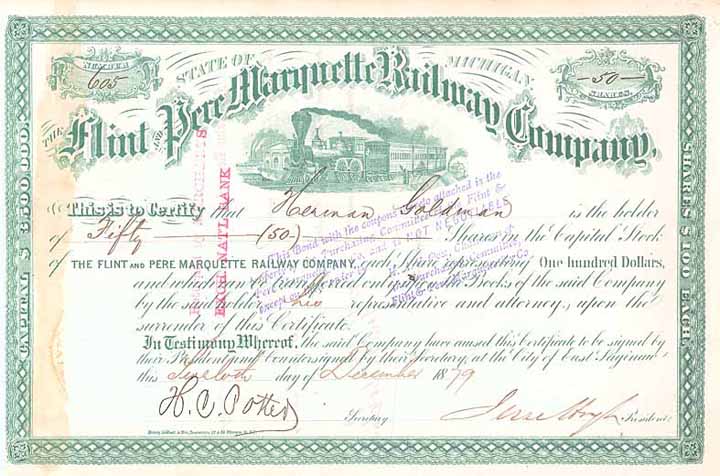 NUMBER
605
STATE OF MICHIGAN
-50-
SHARES
THE Flint AND Pere Marquette Railway Company.
CAPITAL $
SHARES $100 EACH.
EXCH. NAT'L BANK
This is to Certify that Herman Goldman is the holder
of Fifty (50) Shares in the Capital Stock
of THE FLINT AND PERE MARQUETTE RAILWAY COMPANY, each Share representing One hundred Dollars,
and which can be transferred only on the Books of the said Company
by the said holder his representative and attorney, upon the
surrender of this Certificate.
This Bond with the coupons attached is the
Purchasing Committee Flint &
NOT NEGOTIABLE
In Testimony Whereof, the said Company have caused this Certificate to be signed by
their President and Countersigned by their Secretary, at the City of East Saginaw
this Twelvth day of December 1879
H. C. Potter Secretary
Jesse Hoyt President